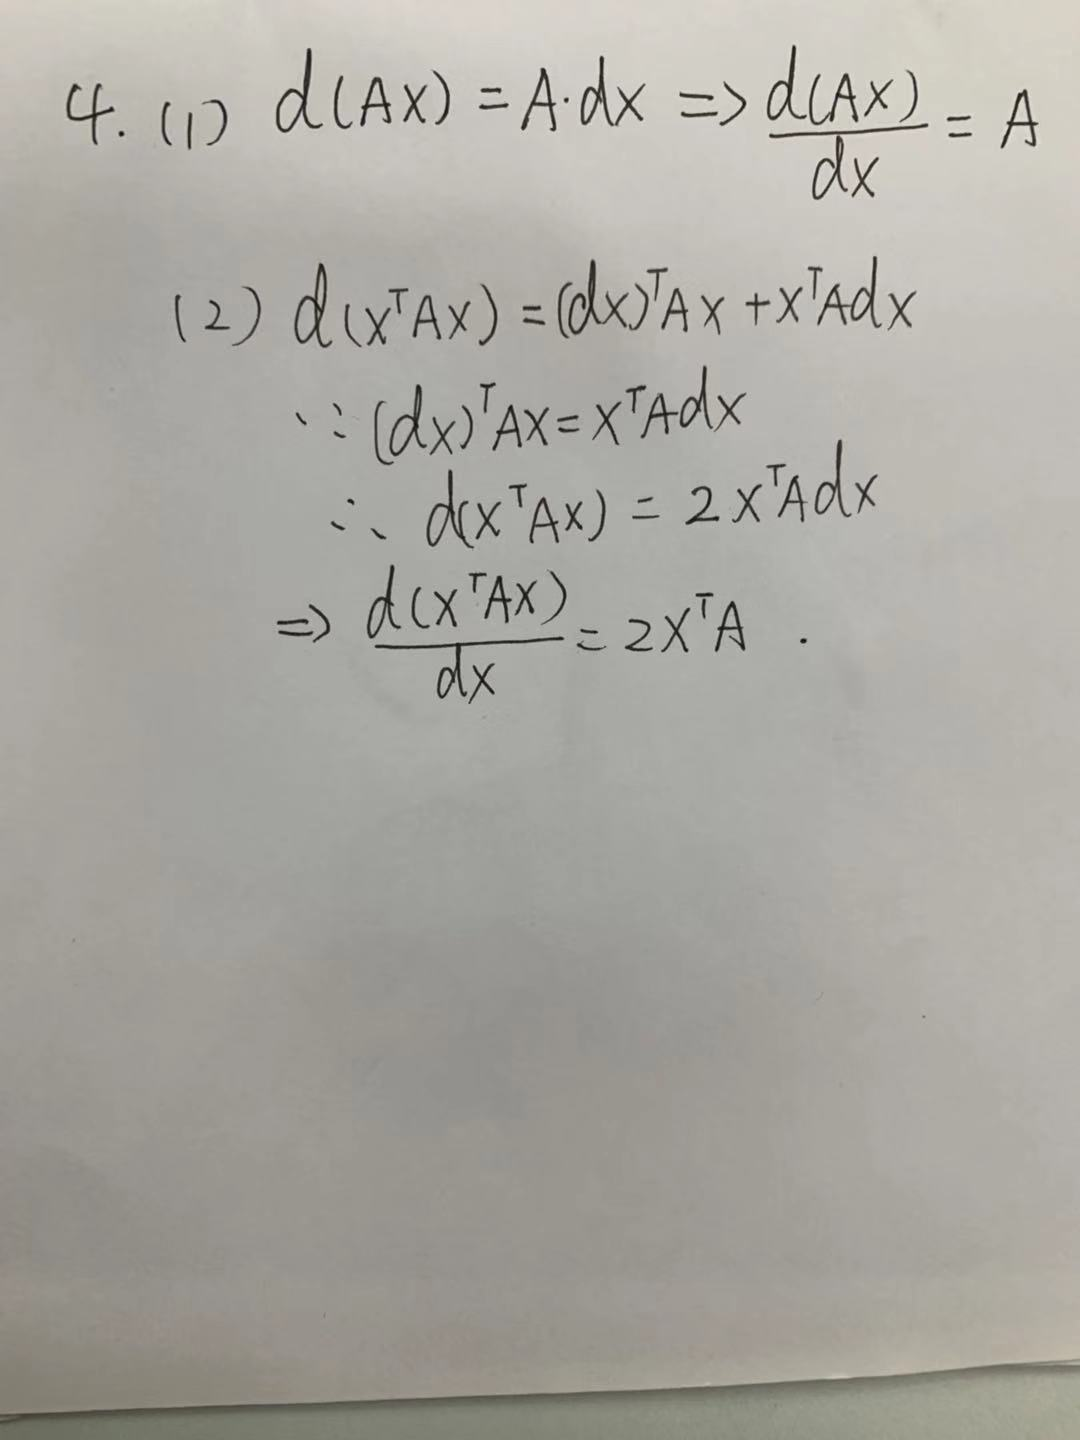 4. (1) d(Ax) = A·dx => d(Ax)/dx = A
(2) d(xᵀAx) = (dx)ᵀAx + xᵀAdx
∵ (dx)ᵀAx = xᵀAdx
∴ d(xᵀAx) = 2xᵀAdx
=> d(xᵀAx)/dx = 2xᵀA .